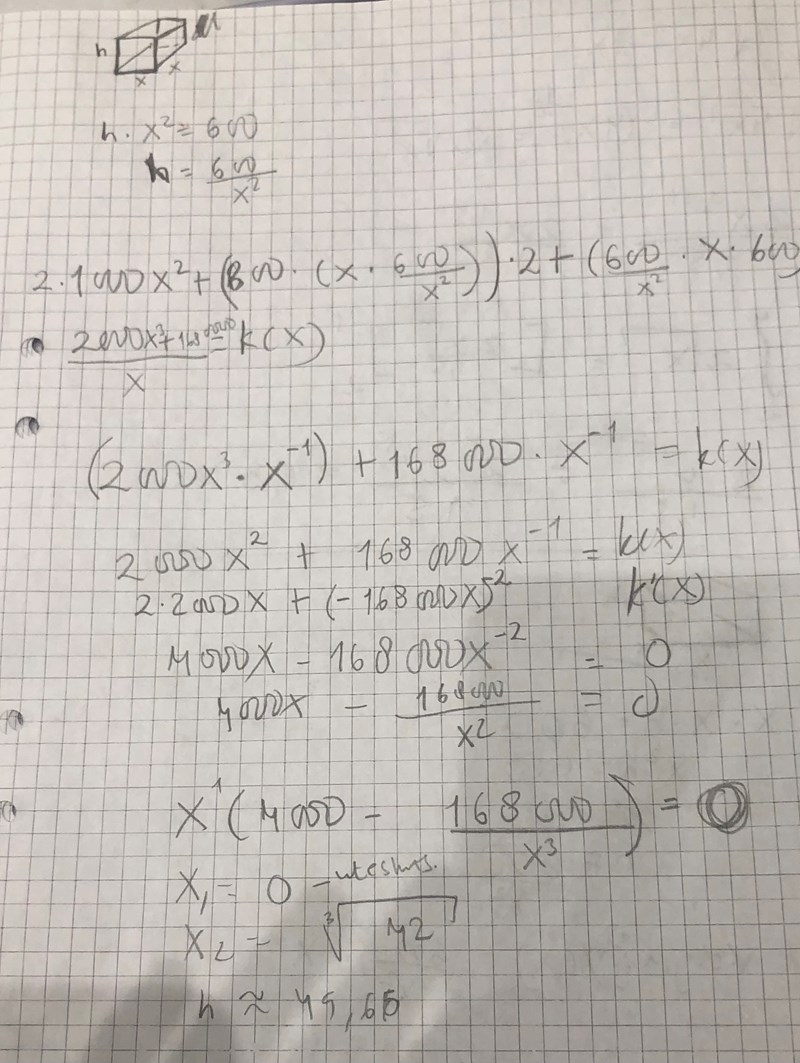 h
x
x
h · x² = 600
h = 600/x²
2·1000x² + (800 · (x · 600/x²))·2 + (600/x² · x · 600)
= k(x)
x
(2000x³ · x⁻¹) + 168 000 · x⁻¹ = k(x)
2000x² + 168 000 x⁻¹ = k(x)
2·2000x + (-168 000x)⁻² k'(x)
4000x - 168 000x⁻² = 0
4000x - 168000/x² = 0
x¹(4000 - 168 000/x³) = 0
x₁ = 0 -
x₂ = ∛42
h ≈ 49,66